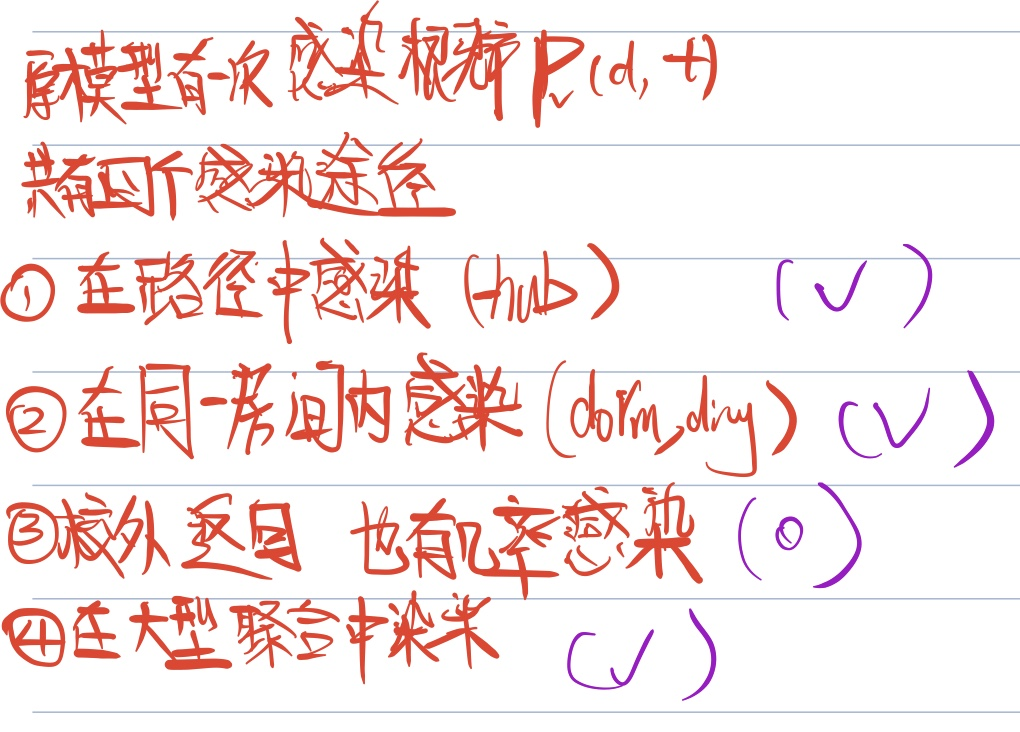 模型有一次感染概率 P(d,t)
共有四个感染途径
① 在路径中感染 (hub) (✓)
② 在同一房间内感染 (dorm, diny) (✓)
③ 校外返回 也有几率感染 (○)
④ 在大型聚会中感染 (✓)